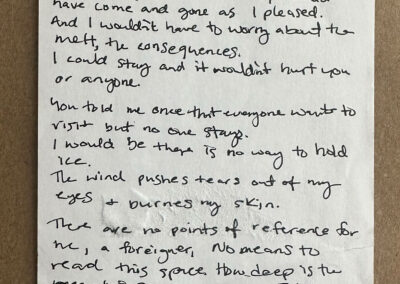 have come and gone as I pleased.
And I wouldn't have to worry about the
melt, the consequences.
I could stay and it wouldn't hurt you
or anyone.
You told me once that everyone wants to
visit but no one stays.
I would be there is no way to hold
ice.
The wind pushes tears out of my
eyes + burnes my skin.
There are no points of reference for
me, a foreigner, No means to
read this space. How deep is the